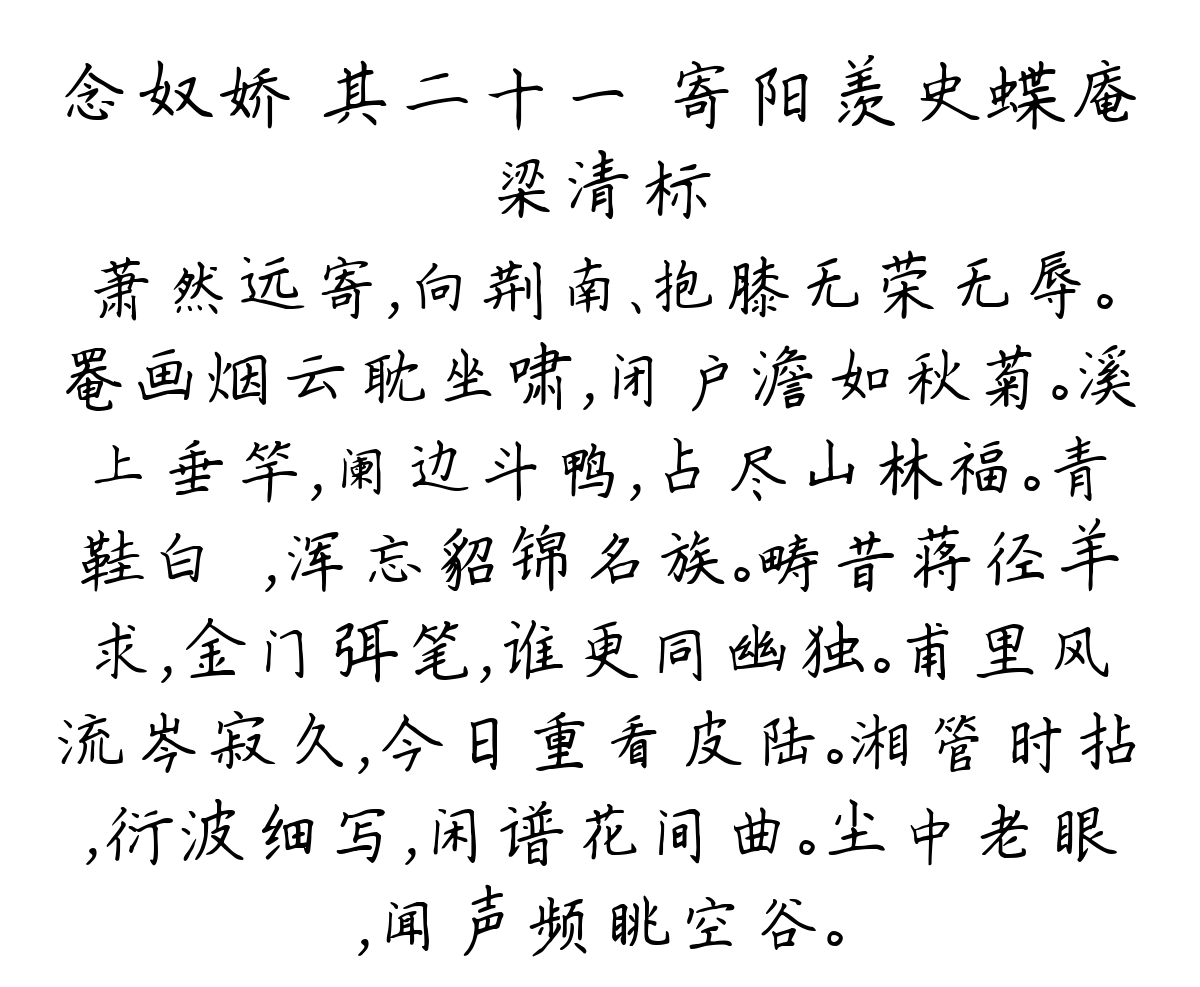 念奴娇 其二十一 寄阳羡史蝶庵
梁清标
萧然远寄,向荆南、抱膝无荣无辱。
罨画烟云耽坐啸,闭户澹如秋菊。溪
上垂竿,阑边斗鸭,占尽山林福。青
鞋白 ,浑忘貂锦名族。畴昔蒋径羊
求,金门弭笔,谁更同幽独。甫里风
流岑寂久,今日重看皮陆。湘管时拈
,衍波细写,闲谱花间曲。尘中老眼
,闻声频眺空谷。